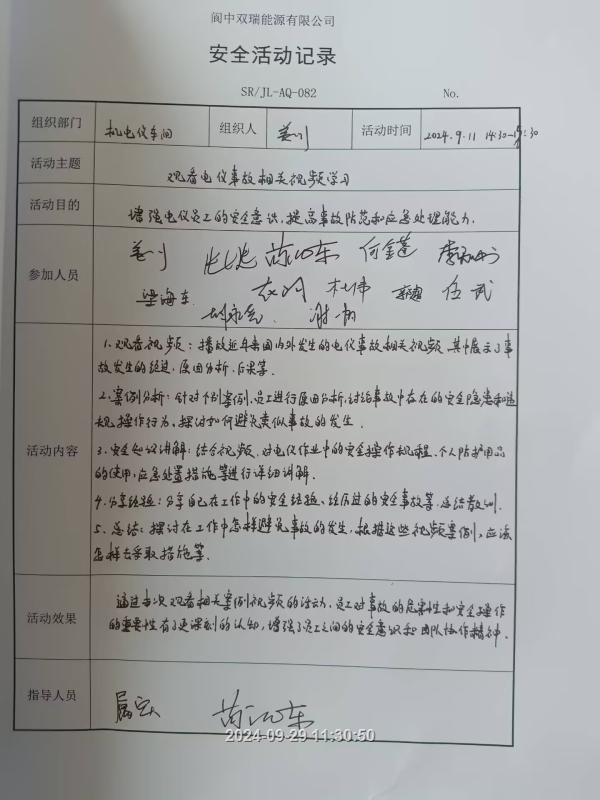 阆中双瑞能源有限公司
安全活动记录
SR/JL-AQ-082 No.
组织部门 机电仪车间 组织人 姜川 活动时间 2024.9.11 14:30-15:30
活动主题 观看电仪事故相关视频学习
活动目的 增强电仪员工的安全意识，提高事故防范和应急处理能力.
姜川 何金蓬
参加人员
梁海东 杜伟 任武
1.观看视频：播放近年来国内外发生的电仪事故相关视频，其中展示了事
故发生的经过，原因分析，后果等.
2.案例分析：针对个别案例，员工进行原因分析，讨论事故中存在的安全隐患和违
规操作行为，探讨如何避免类似事故的发生.
活动内容
3.安全知识讲解：结合视频，对电仪作业中的安全操作规程，个人防护用品
的使用，应急处置措施等进行详细讲解.
4.分享经验：分享自己在工作中的安全经验、经历过的安全事故等，总结教训.
5.总结：探讨在工作中怎样避免事故的发生，根据这些视频案例，应该
怎样去采取措施等.
通过本次观看相关案例视频的活动，员工对事故的危害性和安全操作
活动效果
的重要性有了更深刻的认知，增强了员工之间的安全意识和团队协作精神.
指导人员
2024-09-29 11:30:50